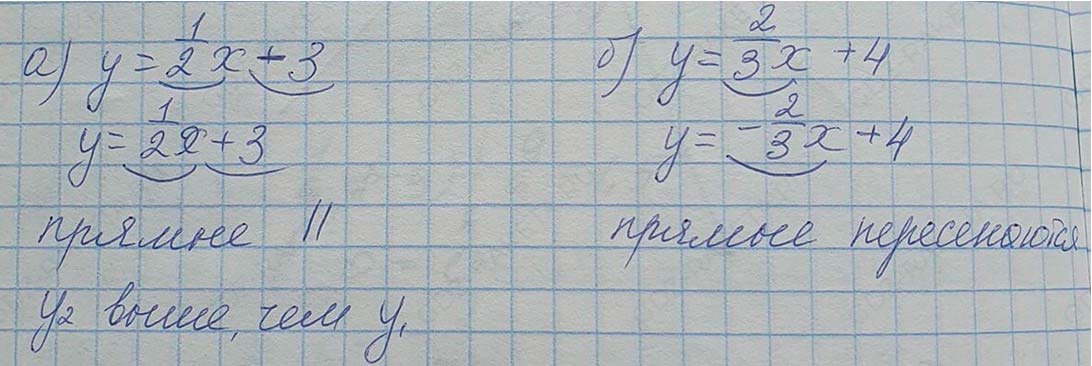 а) y = 1/2 x + 3
y = 1/2 x + 3
прямые ||
y₂ выше, чем y₁
б) y = 2/3 x + 4
y = - 2/3 x + 4
прямые пересекаются